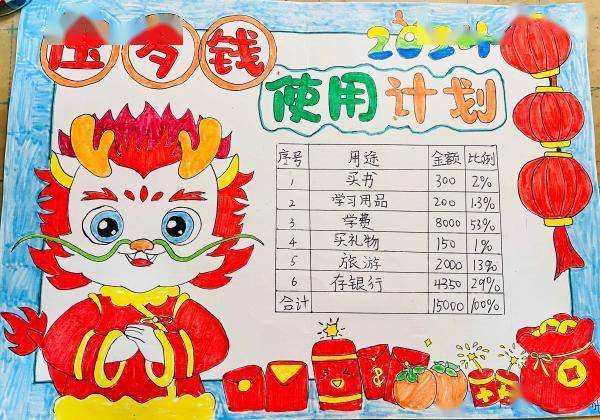 压岁钱
2024
使用计划
序号 用途 金额 比例
1 买书 300 2%
2 学习用品 200 1.3%
3 学费 8000 53%
4 买礼物 150 1%
5 旅游 2000 13%
6 存银行 4350 29%
合计 15000 100%